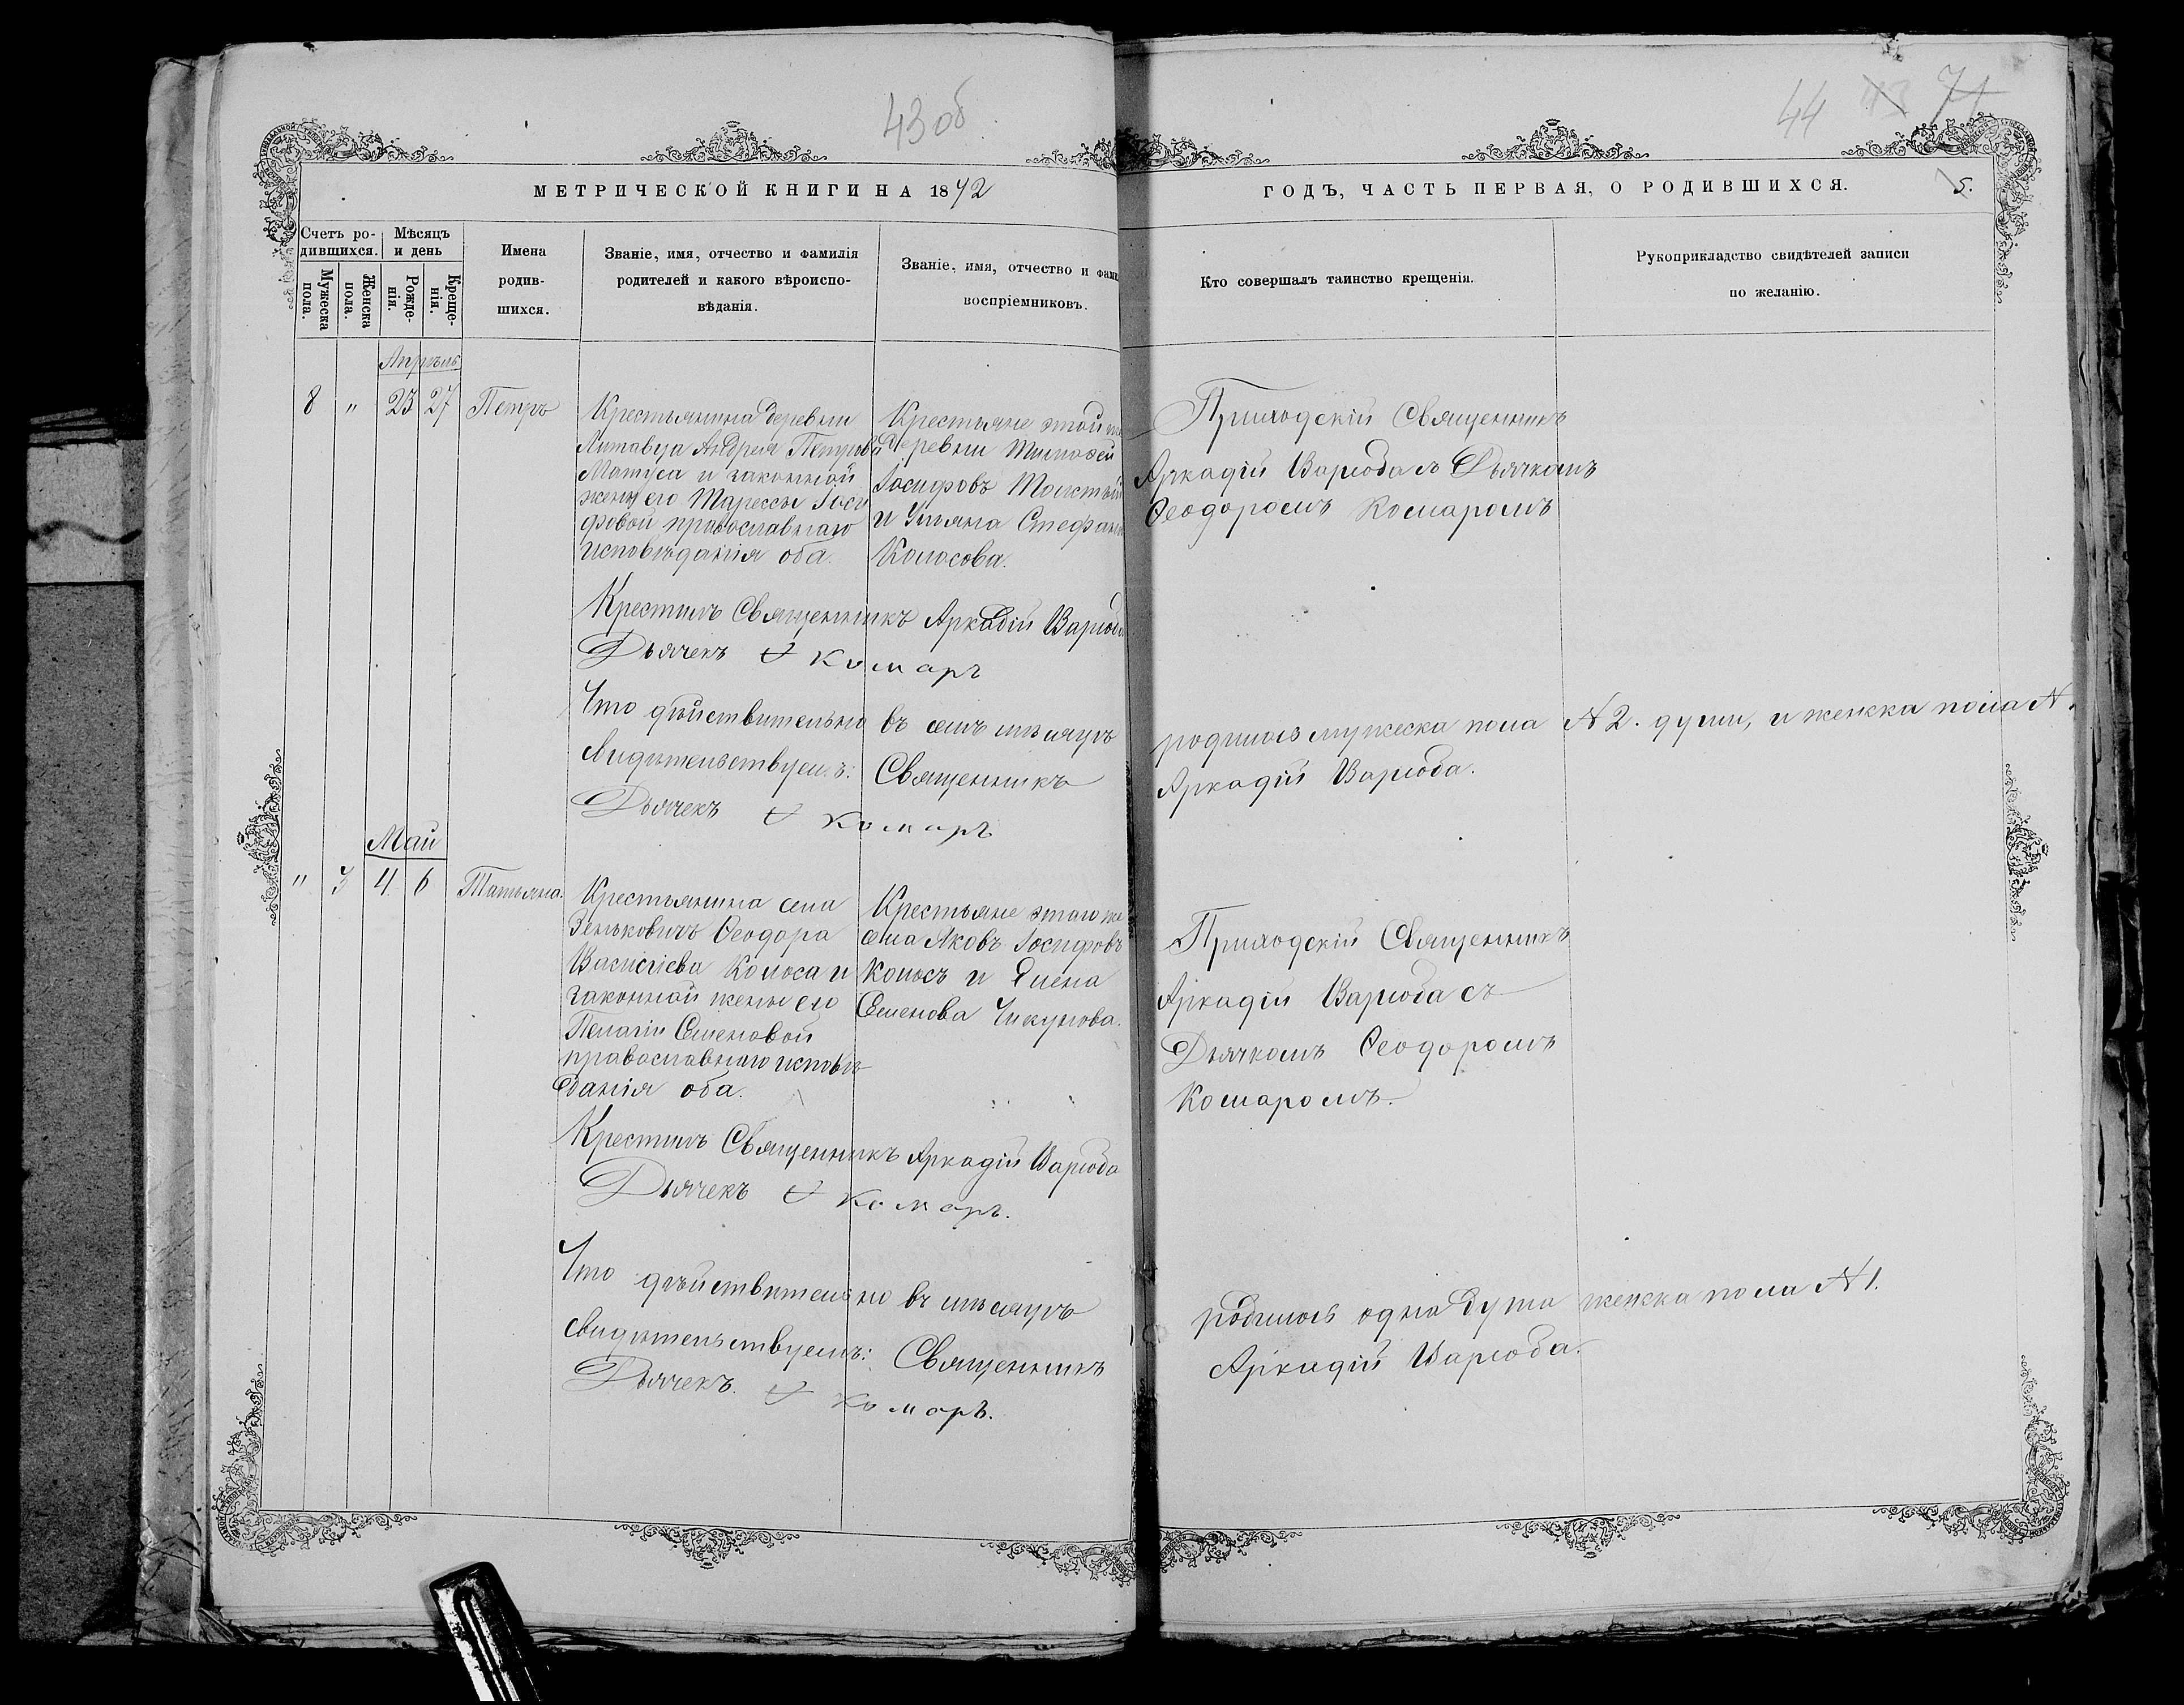 43 об
МЕТРИЧЕСКОЙ КНИГИ НА 1872
Счетъ ро-
дившихся.
Мужеска
пола.
Женска
пола.
Мѣсяцъ
и день
Рожде-
нія.
Креще-
нія.
Имена
родив-
шихся.
Званіе, имя, отчество и фамилія
родителей и какого вѣроиспо-
вѣданія.
Званіе, имя, отчество и фами
воспріемниковъ.
Апрѣль
8 " 23 27 Петръ
Крестьянина деревни
Литавца Андрея Петрова
Матуса и законной
жены его Тарессы Госи
фовой православнаго
исповѣданія оба.
Крестьяне этой
деревни Тимофей
Іосифовъ Толстый
и Ульяна Стефан
Колосова.
Крестилъ Священникъ Аркадій Варюба
Дьячекъ Ѳ Комаръ
Что дѣйствительно въ семъ мѣсяцѣ
свидѣтельствуемъ: Священникъ
Дьячекъ Ѳ Комаръ
Май
" 3 4 6 Татьяна.
Крестьянина села
Зеньковичъ Ѳеодора
Василіева Колоса и
законной жены его
Пелагіи Семеновой
православнаго исповѣ-
данія оба.
Крестьяне этаго же
села Яковъ Іосифовъ
Колосъ и Елена
Семенова Чикунова.
Крестилъ Священникъ Аркадій Варюба
Дьячекъ Ѳ Комаръ.
Что дѣйствительно въ мѣсяцѣ
свидѣтельствуемъ: Священникъ
Дьячекъ. Ѳ Комаръ.
44 43 71
ГОДЪ, ЧАСТЬ ПЕРВАЯ, О РОДИВШИХСЯ.
5.
Кто совершалъ таинство крещенія.
Рукоприкладство свидѣтелей записи
по желанію.
Приходскій Священникъ
Аркадій Варюба съ Дьячкомъ
Ѳеодоромъ Комаромъ
родилось мужеска пола № 2. души, и женска пола №
Аркадій Варюба.
Приходскій Священникъ
Аркадій Варюба съ
Дьячкомъ Ѳеодоромъ
Комаромъ.
родилось одна душа женска пола № 1.
Аркадій Варюба.